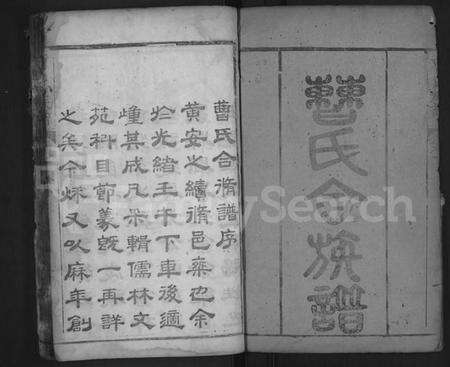 曹氏合族譜
曹氏合脩譜序
黃安之續脩邑乘也余
於光緒壬午下車後適
峰其成凡采輯儒林文
苑科目節義既一再詳
之矣今妹又以麻年創
FamilySearch